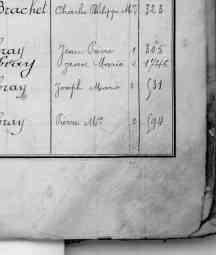 Brachet Charles Philippe Mie 323
ray Jean Pierre 1 305
Jeane Marie 2 1746
ray Joseph Marie 2 531
ray Pierre Mie 2 590